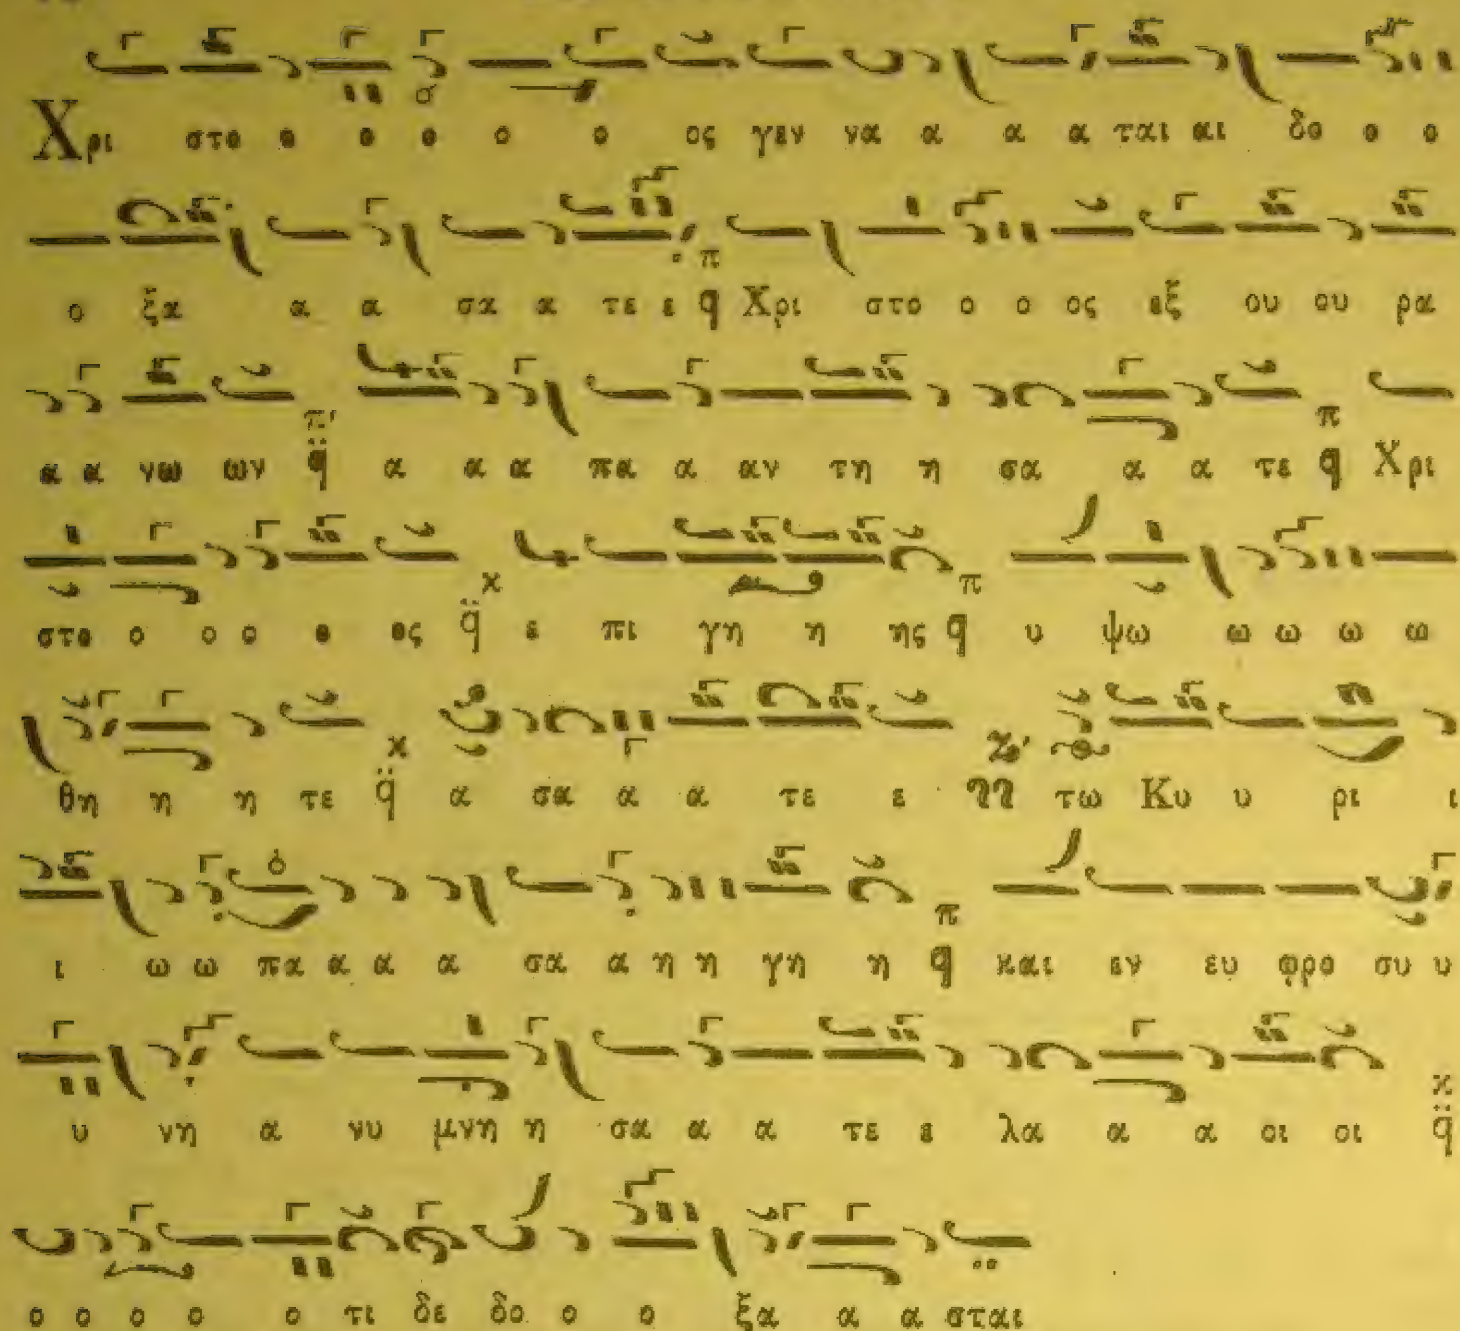 Χρι στο ο ο ο ο ο ος γεν να α α α ται αι δο ο ο
ο ξα α α σα α τε ε π q Χρι στο ο ο ος εξ ου ου ρα
α α νω ων π' q α α α πα α αν τη η σα α α τε π q Χρι
στο ο ο ο ο ος κ q ε πι γη η ης π q υ ψω ω ω ω ω
θη η η τε κ q α σα α α τε ε Ζ' τω Κυ υ ρι ι
ι ω ω πα α α α σα α η η γη η π q και εν ευ φρο συ υ
υ νη α νυ μνη η σα α α τε ε λα α α οι οι κ q
ο ο ο ο ο τι δε δο ο ο ξα α α σται